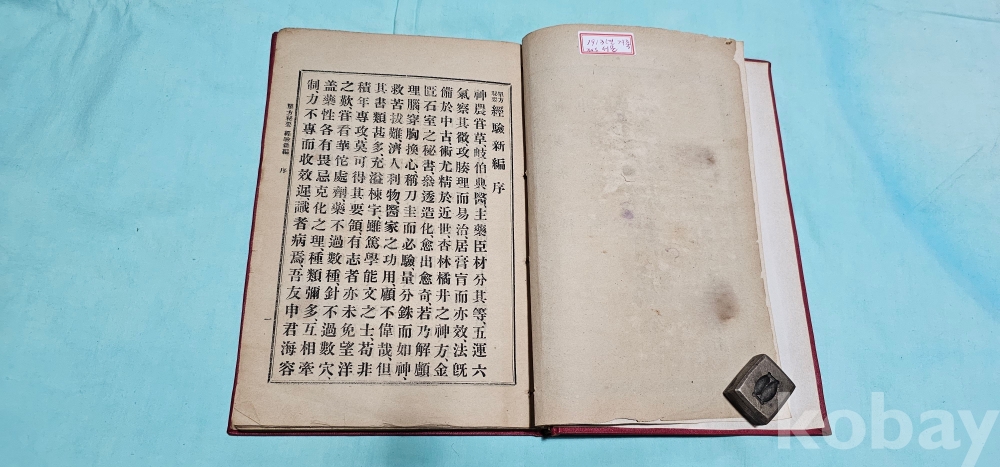 單方秘要 經驗新編 序
神農嘗草岐伯典醫主藥臣材分其等、五運六
氣察其微攻腠理而易治居膏肓而亦效、法旣
備於中古術尤精於近世、杏林橘井之神方、金
匱石室之秘書、叅透造化、愈出愈奇、若乃解顱
理腦穿胸換心、稱刀圭而必驗量分銖而如神、
救苦拔難濟人利物、醫家之功用、顧不偉哉、但
其書類甚多、充溢棟宇雖篤學能文之士、苟非
積年專攻、莫可得其要領、有志者亦未免望洋
之歎、嘗看華佗處劑、藥不過數種、針不過數穴、
盖藥性各有畏忌克化之理、種類彌多、互相牽
制、力不專而收效遲、識者病焉、吾友申君海容
單方秘要 經驗新編 序
kobay